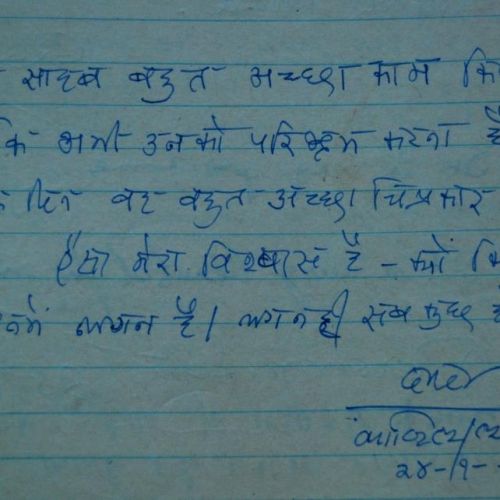 साहब बहुत अच्छा काम कि
कि अभी उनको परिश्रम करना है
दिन वह बहुत अच्छा चित्रकार
ऐसा मेरा विश्वास है - क्यों कि
लगन है। लगन ही सब कुछ है